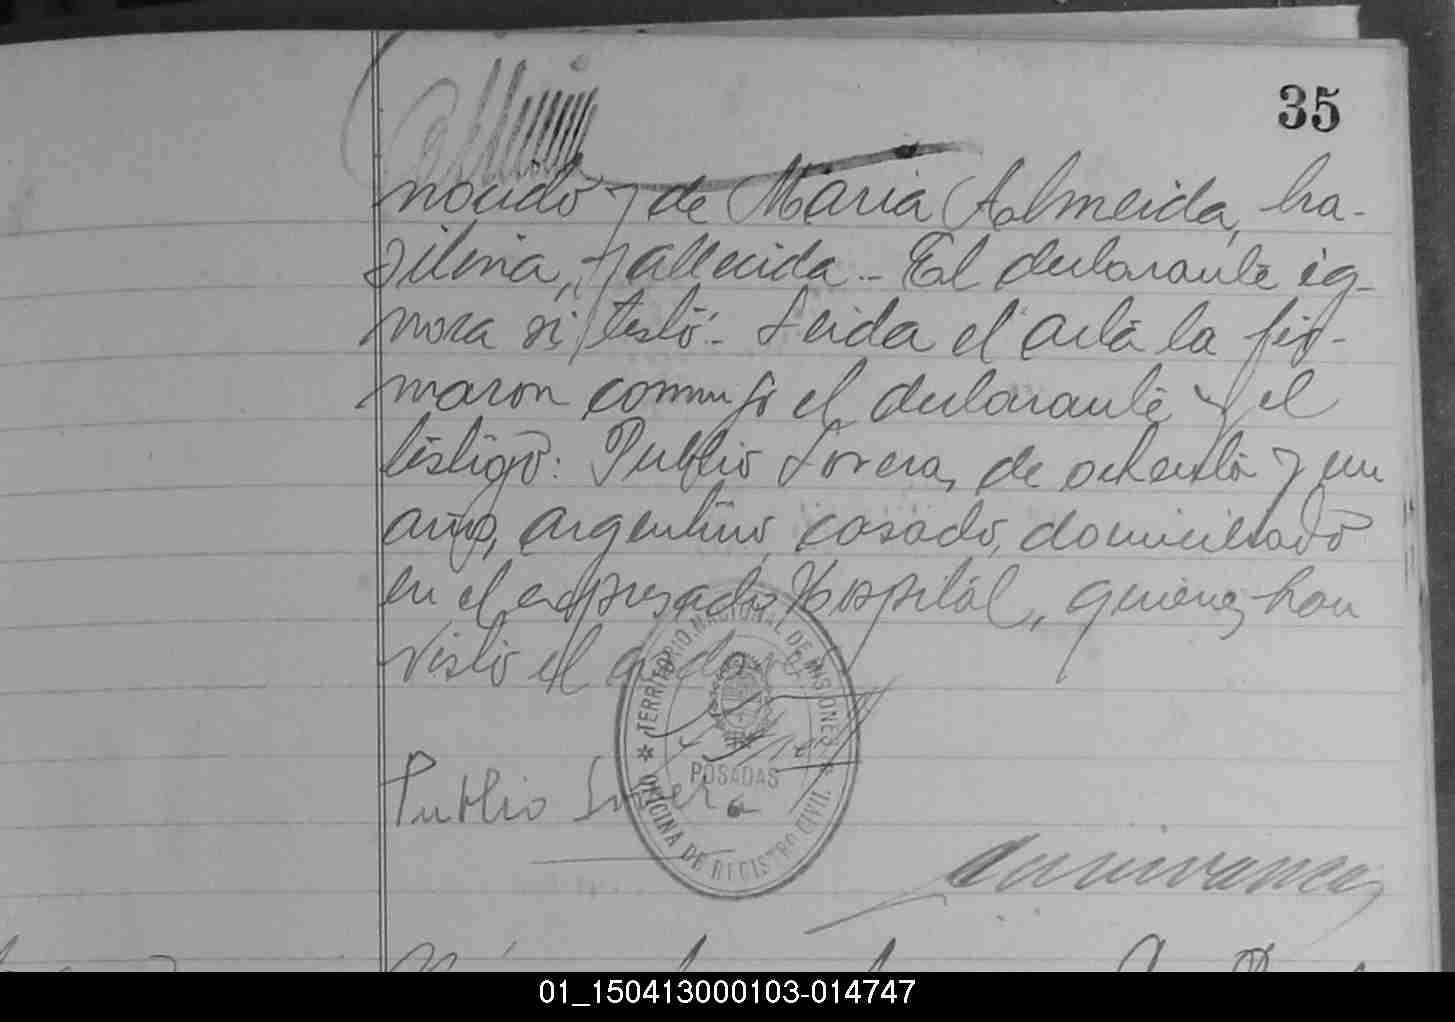 35
nocido y de Maria Almeida, bra-
silera, fallecida.- El declarante ig-
nora si testó.- Leida el acta la fir-
maron conmigo el declarante y el
testigo: Publio Lovera, de ochenta y un
años, argentino, casado, domiciliado
en el expresado Hospital, quienes han
visto el
TERRITORIO NACIONAL DE MISIONES
POSADAS
OFICINA DE REGISTRO CIVIL
Publio Lovera
01_150413000103-014747